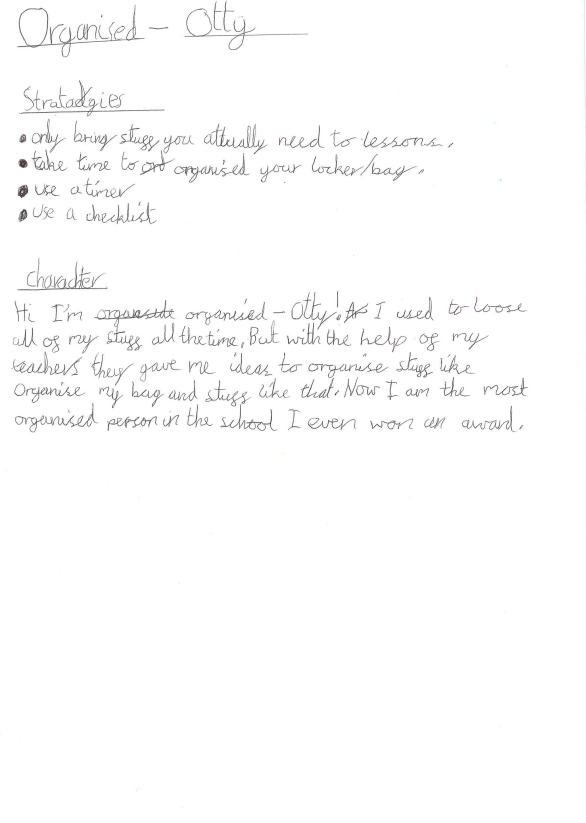 Organised - Otty
Stratadgies
• only bring stuff you attually need to lessons.
• take time to ort organised your locker/bag.
• use a timer
• use a checklist
Charachter
Hi I'm organsite organised - Otty! As I used to loose
all of my stuff all the time, But with the help of my
teachers they gave me ideas to organise stuff like
Organise my bag and stuff like that. Now I am the most
organised person in the school I even won an award.